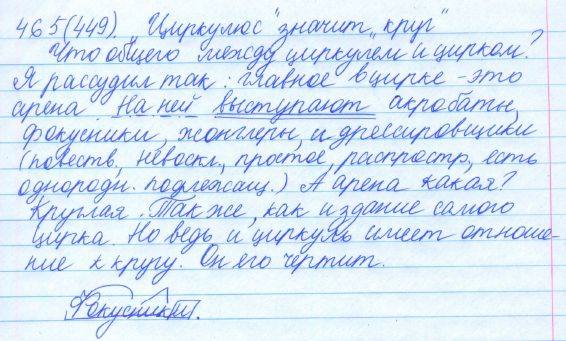 465(449). "Циркулюс" значит "круг"
Что общего между циркулем и цирком?
Я рассудил так: главное в цирке - это
арена. На ней выступают акробаты,
фокусники, жонглеры, и дрессировщики
(повеств., невоскл., простое, распростр., есть
однородн. подлежащ.) А арена какая?
Круглая. Также, как и здание самого
цирка. Но ведь и циркуль имеет отноше-
ние к кругу. Он его чертит.
Фокусники.